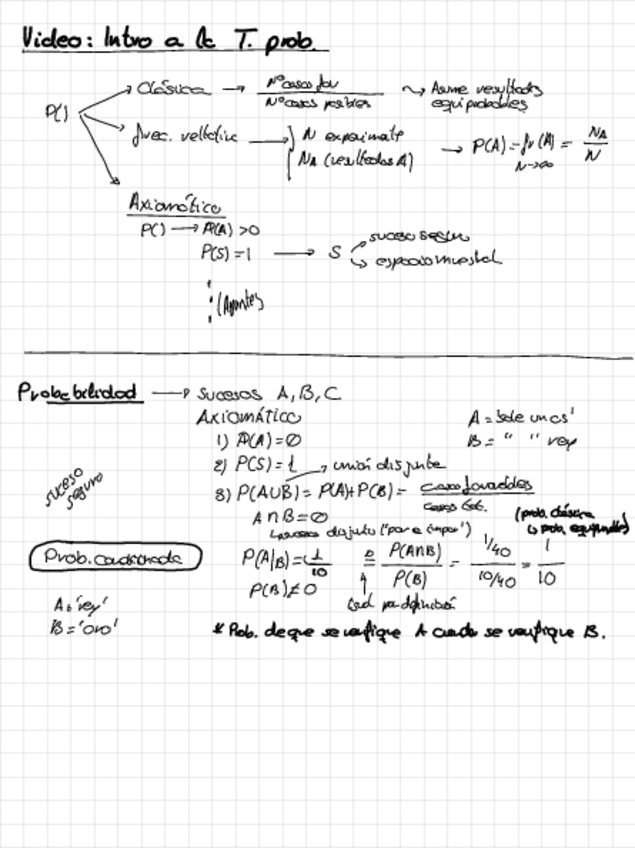 Video: Intro a la T. prob.
P() → Clásica → Nº casos fav / Nº casos posibles ↝ Asume resultados equiprobables
→ frec. relativa → N experimente
N_A (resultados A) → P(A) = fr(A) = N_A / N
N→∞
→ Axiomático
P() → P(A) > 0
P(S) = 1 → S suceso seguro
espacio muestral
(Apuntes
Probabilidad → Sucesos A, B, C
Axiomático
A = 'sale un as'
1) P(A) = 0
B = " " rey
2) P(S) = 1
suceso seguro
→ unión disjunta
3) P(A∪B) = P(A) + P(B) = casos favorables / casos tot.
A∩B = ∅
(prob. clásica
↳ prob. equiprobables)
↳ sucesos disjuntos ("par e impar")
Prob. condicionada
P(A|B) = 1/10 = P(A∩B) / P(B) = 1/40 / 10/40 = 1/10
P(B) ≠ 0
por definición
A = 'rey'
B = 'oro'
* Prob. de que se verifique A cuando se verifique B.